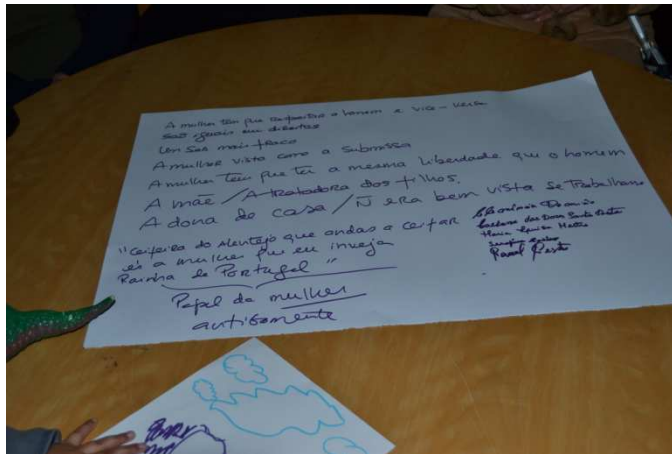 A mulher tem que respeitar o homem e vice-versa
São iguais em direitos
Um ser mais fraco
A mulher vista como a submissa
A mulher tem que ter a mesma liberdade que o homem
A mãe / A tratadora dos filhos.
A dona de casa / Ñ era bem vista se trabalhasse
"Ceifeira do Alentejo que andas a ceifar
és a mulher que eu inveja
Rainha de Portugal"
Papel da mulher
antigamente
Maria Luisa
Raul